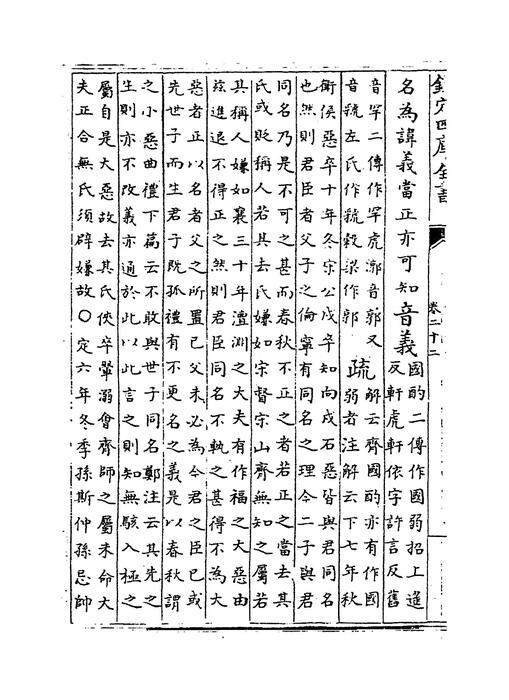 欽定四庫全書
卷二十二
名為諱義當正亦可知音義國酌二傳作國弱招上遙
反軒虎軒依字許言反舊
音罕二傳作罕虎漷音郭又
音虢左氏作虢穀梁作郭
疏解云齊國酌亦有作國
弱者注解云下七年秋
衛侯惡卒十年冬宋公戌卒知向戌石惡皆與君同名
也然則君臣者父子之倫寧有同名之理今二子與君
同名乃是不可之甚而春秋不正之者若正之當去其
氏或貶稱人若其去氏嫌如宋督宋山齊無知之屬若
其稱人嫌如襄三十年澶淵之大夫有作福之大惡由
茲進退不得正之然則君臣同名不軌之甚得不為大
惡者正以名者父之所置已父未必為今君之臣已或
先世子而生君子既孤禮有不更名之義是以春秋謂
之小惡曲禮下篇云不敢與世子同名鄭注云其先之
生則亦不改義亦通於此以此言之則知無駭入極之
屬自是大惡故去其氏俠卒翬溺會齊師之屬未命大
夫正合無氏須辟嫌故○定六年冬季孫斯仲孫忌帥